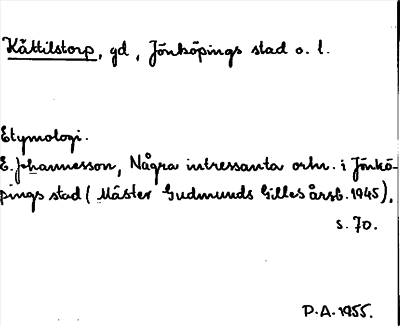 Kättilstorp, gd, Jönköpings stad o. l.
Etymologi.
E. Johannesson, Några intressanta ortn. i Jönkö-
pings stad (Mäster Gudmunds Gilles årsb. 1945),
s. 70.
P.A. 1955.